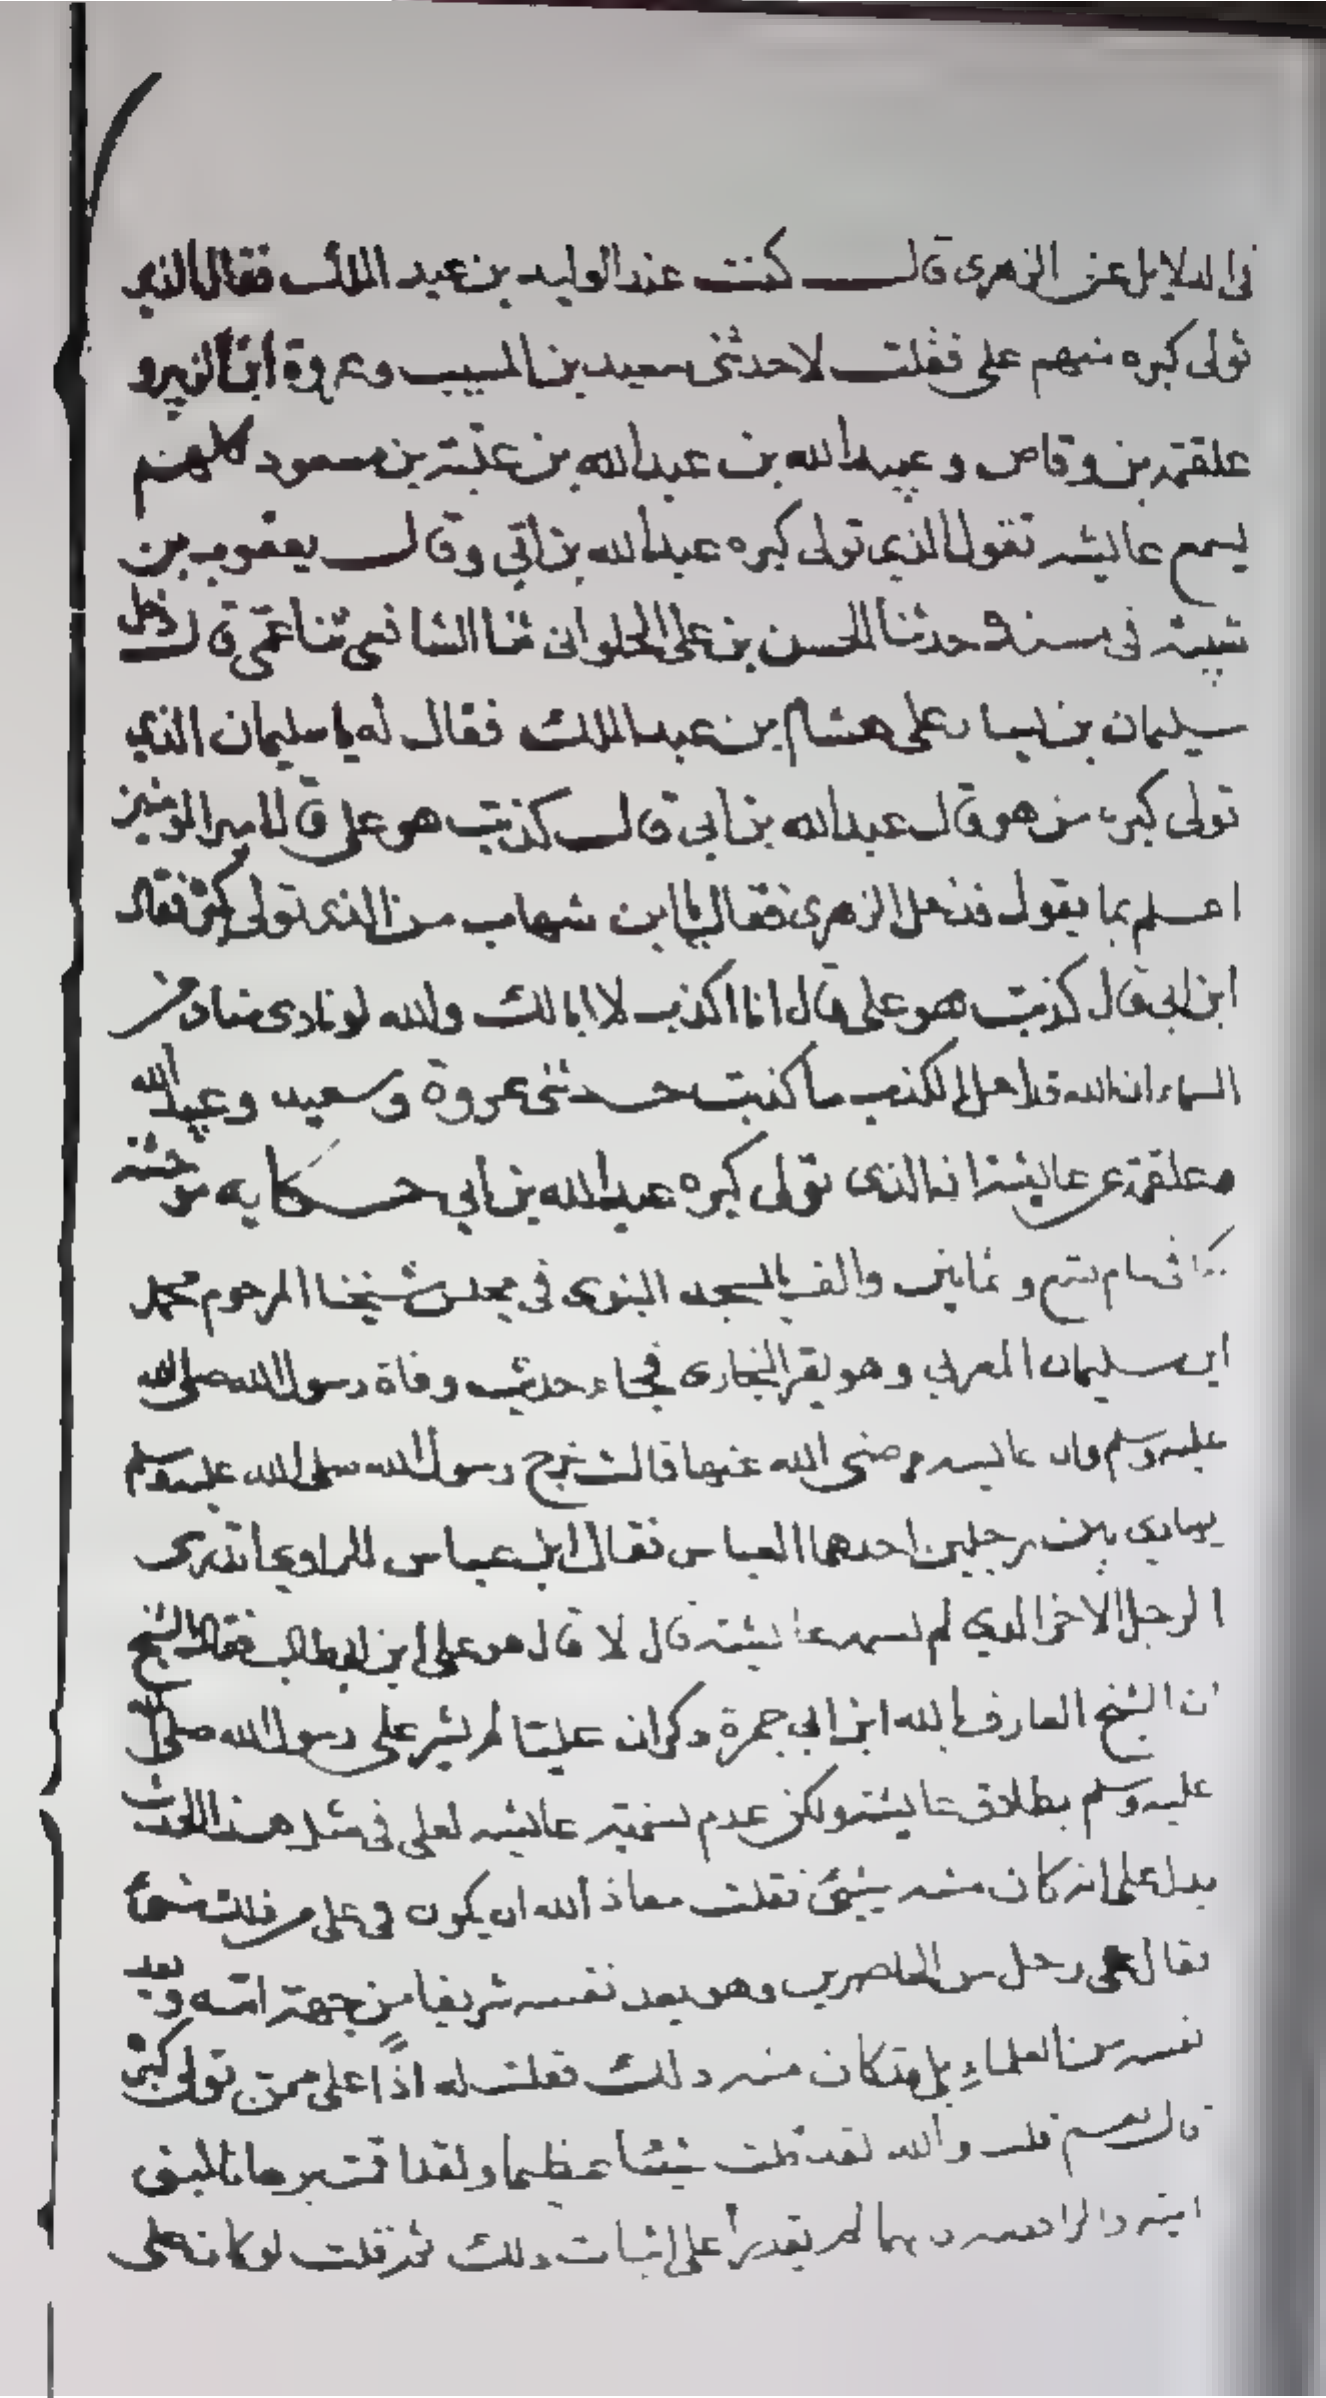 في الدلايل عن الزهرى قال كنت عند الوليد بن عبد الملك فقال الذي
تولى كبره منهم على فقلت لا حدثنى سعيد بن المسيب وعروة ابن الزبير و
علقمة بن وقاص وعبيد الله بن عبد الله بن عتبة بن مسعود كلهم
يسمع عايشه تقول الذي تولى كبره عبد الله بن أبي وقال يعقوب بن
شيبة فى مسنده حدثنا الحسن بن على الحلوانى ثنا الشافعى ثنا عمّى قال دخل
سليمان بن يسار على هشام بن عبد الملك فقال له يا سليمان الذي
تولى كبره من هو قال عبد الله بن ابي قال كذبت هو على قال امير المومنين
اعلم بما يقول فدخل الزهرى فقال يا ابن شهاب من الذى تولى كبره فقال
ابن ابي قال كذبت هو على قال انا اكذب لا ابا لك والله لو نادى مناد من
السماء ان الله قد احل الكذب ما كذبت حدثنى عروة وسعيد وعبيد الله
وعلقمة عن عايشة ان الذى تولى كبره عبد الله بن ابي حكايه موحشة
كنا فى عام تسع وثمانين والف بالمسجد النبوى فى مجلس شيخنا المرحوم محمد
ابن سليمان المغربي وهو يقرا البخارى فجاء حديث وفاة رسول الله صلى الله
عليه وسلم وان عايشه رضى الله عنها قالت خرج رسول الله صلى الله عليه وسلم
يهادي بين رجلين احدهما العباس فقال ابن عباس للراوي اتدرى
الرجل الاخر الذي لم تسمه عايشة قال لا قال هو على ابن ابي طالب فقال الشيخ
ان الشيخ العارف بالله ابن ابي جمرة ذكر ان عليّا لم يشر على رسول الله صلى الله
عليه وسلم بطلاق عايشة ولكن عدم تسمية عايشه لعلى فى مثل هذا الحديث
يدل على انه كان منه شيئ فقلت معاذ الله ان يكون في على من ذلك شيئ
فقال لى رجل من الحاضرين وهو يعد نفسه شريفا من جهة امّه ويعد
نفسه من العلماء بل قد كان منه ذلك فقلت له اذًا على ممن تولى كبره
قال نعم قلت والله لقد قلت شيئا عظيما ولقد اقمت برهانا لبنى
امية والرافضه لم يقدروا على اثبات ذلك ثم قلت لو كان على